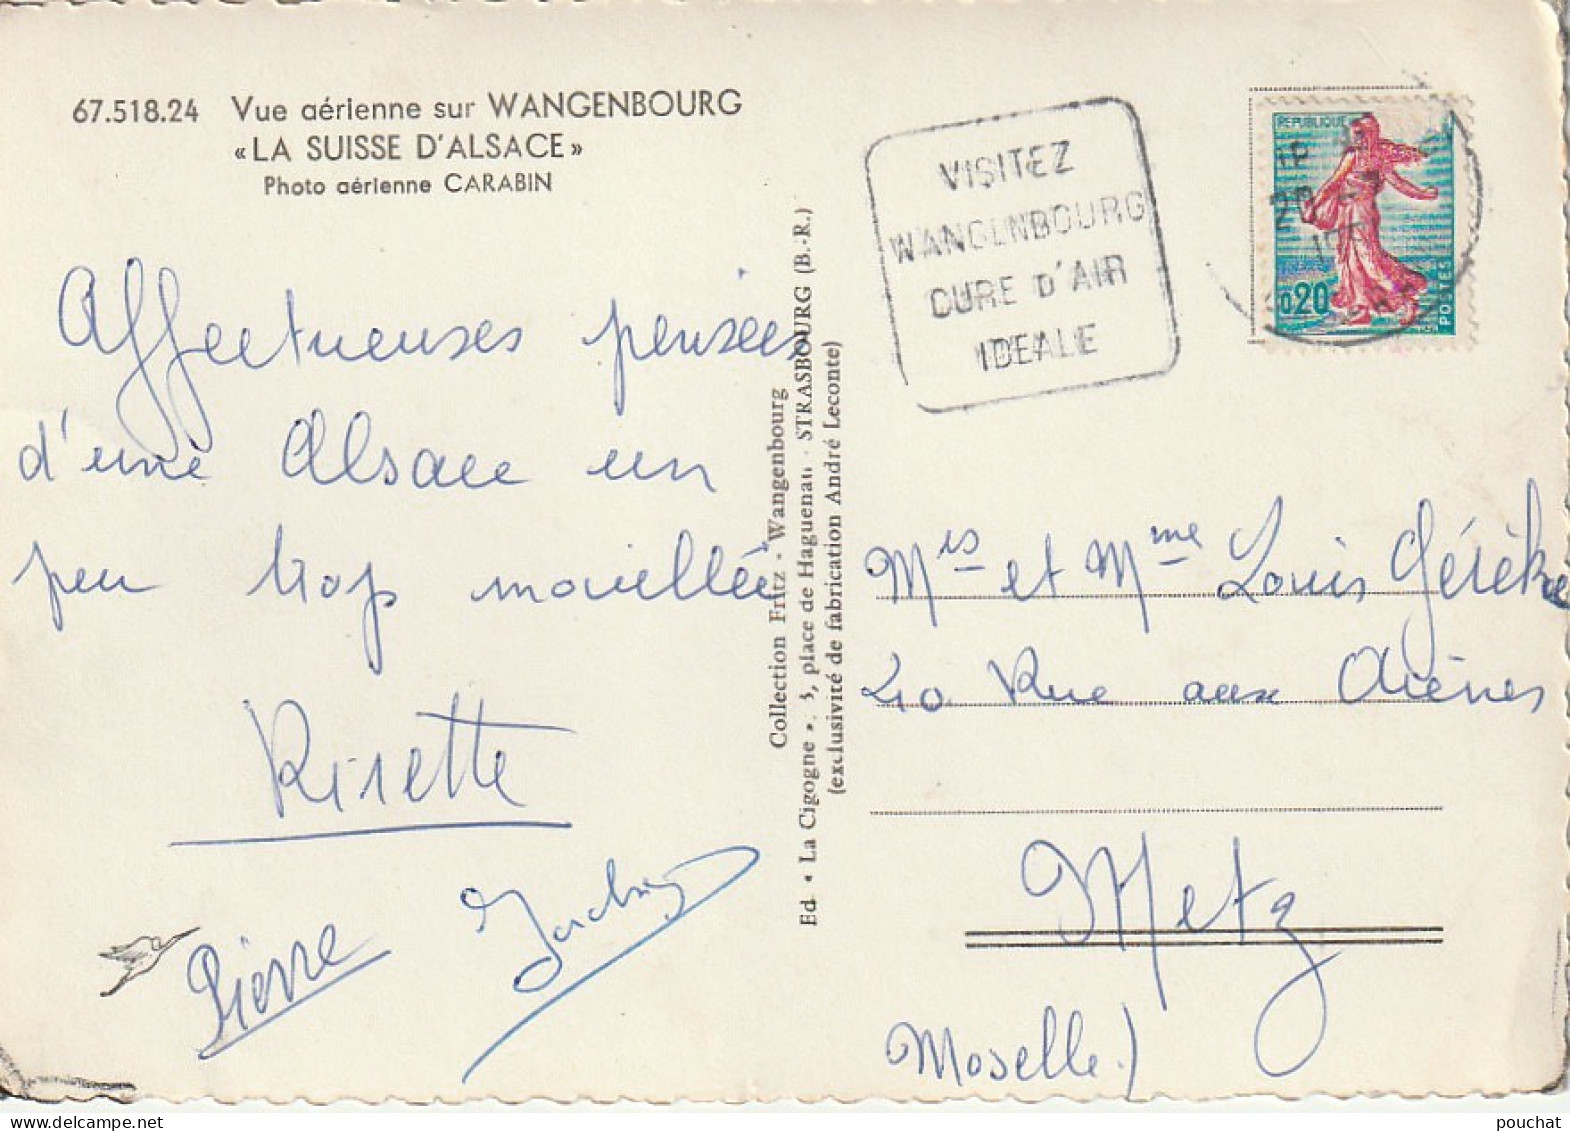 67.518.24 Vue aérienne sur WANGENBOURG
«LA SUISSE D'ALSACE»
Photo aérienne CARABIN
Affectueuses pensées
d'une Alsace un
peu trop mouillée
Risette
Pierre
VISITEZ
WANGENBOURG
CURE D'AIR
IDEALE
REPUBLIQUE
0,20
POSTES
Collection Fritz - Wangenbourg
Ed. « La Cigogne », 3, place de Haguenau - STRASBOURG (B.-R.)
(exclusivité de fabrication André Leconte)
et Mme Louis
Rue aux Arènes
Metz
Moselle)
pouchat